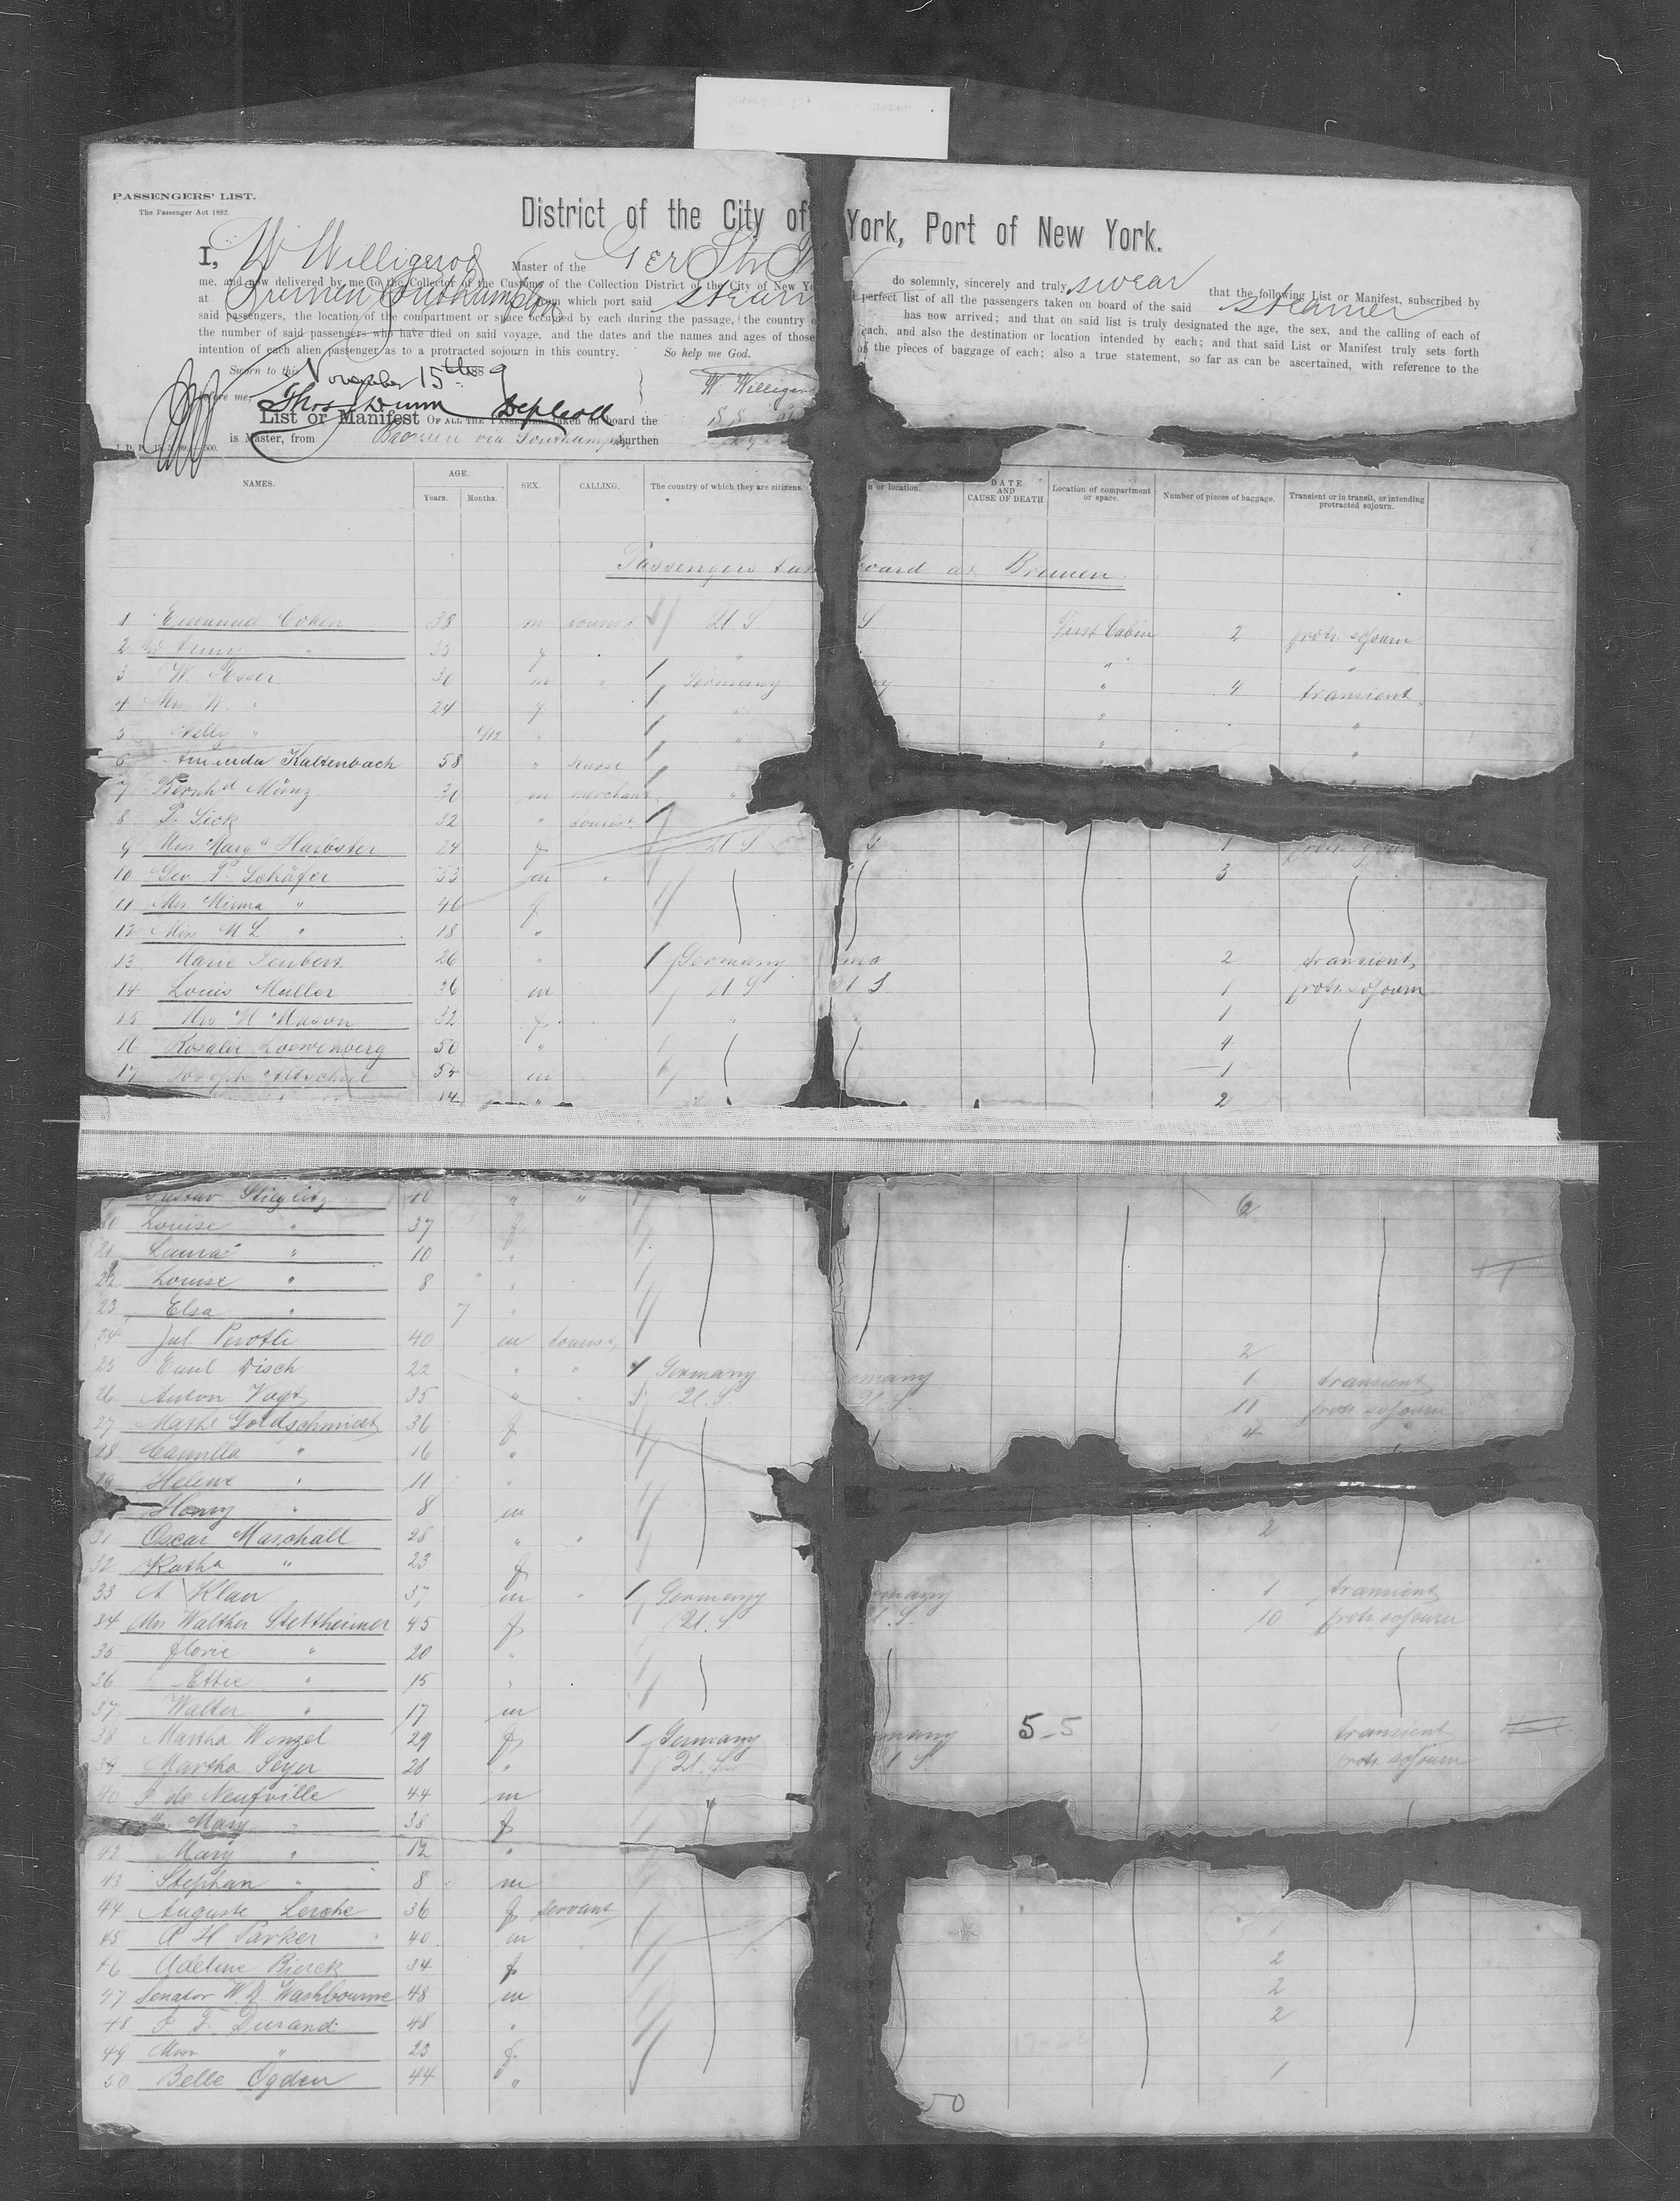 PASSENGERS' LIST.
The Passenger Act 1882.
District of the City of York, Port of New York.
I, W Willigerod Master of the Ger Str do solemnly, sincerely and truly swear that the following List or Manifest, subscribed by
me, and now delivered by me to the Collector of the Customs of the Collection District of the City of New Yo perfect list of all the passengers taken on board of the said steamer
at Bremen Southampton from which port said steam has now arrived; and that on said list is truly designated the age, the sex, and the calling of each of
said passengers, the location of the compartment or space occupied by each during the passage, the country o each, and also the destination or location intended by each; and that said List or Manifest truly sets forth
the number of said passengers who have died on said voyage, and the dates and the names and ages of those of the pieces of baggage of each; also a true statement, so far as can be ascertained, with reference to the
intention of each alien passenger as to a protracted sojourn in this country. So help me God.
Sworn to this November 15th 1889 W Willigerod
before me, Thos Dunn Dep Coll
List or Manifest OF ALL THE PASSENGERS taken on board the
is Master, from Bremen via Southampton burthen
NAMES. AGE. Years. Months. SEX. CALLING. The country of which they are citizens. n or location. DATE AND CAUSE OF DEATH Location of compartment or space. Number of pieces of baggage. Transient or in transit, or intending protracted sojourn.
Passengers tak board at Bremen.
1 Emanuel Cohen 38 m tourist U. S. S. First Cabin 2 protr sojourn
2 " 33 f " " " "
3 W. Esser 30 m " Germany ny " 4 transient
4 Mrs W. " 24 f " " "
5 Nelly " " " " "
6 Amanda Kaltenbach 58 " nurse "
7 Bernhd Münz 30 m merchant "
8 P. Sick 32 " tourist
9 Miss Marg Harbster 24 f U S S 1
10 Geo F Schäfer 53 m " 3
11 Mrs Minna " 46 f
12 Miss M L " 18 "
13 Marie Seubert 26 " Germany ma 2 transient
14 Louis Müller 36 m U S U S 1 protr sojourn
15 Mrs M Mason 32 f " 1
16 Rosalie Loewenberg 50 " 4
17 Joseph Altschul 54 m 1
14 " 2
Gustav Stieglitz 40 " " 6
20 Louise " 37 f
21 Laura " 10 "
22 Louise " 8 "
23 Elsa " 7 "
24 Jul Perotti 40 m tourist 2
25 Emil Disch 22 " " Germany rmany 1 transient
26 Anton Vogt 35 " " U. S. U. S. 11 protr sojourn
27 Mathe Goldschmidt 36 f 4
28 Camilla " 16 "
29 Helene " 11 "
Henry " 8 m
31 Oscar Marschall 28 " " 2
32 Katha " 23 f
33 A Klau 37 m " Germany rmany 1 transient
34 Mrs Walther Stettheimer 45 f U. S. U. S. 10 protr sojourn
35 Florie " 20 "
36 Ettie " 15 "
37 Walter " 17 m
38 Martha Wenzel 29 f Germany rmany 5-5 transient
39 Martha Seyer 28 " U. S. S. protr sojourn
40 de Neufville 44 m
Mary " 38 f
42 Mary " 12 "
43 Stephan " 8 m
44 Auguste Lerche 36 f servant
45 A H Parker 40 m 1
46 Adeline Bierck 34 f 2
47 Senator W. D. Washbourne 48 m 2
48 F. Durand 48 " 2
49 " 23 f
50 Belle Ogden 44 " 1
50